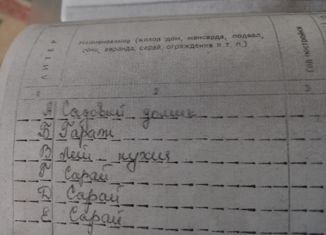 ЛИТЕР
Наименование (жилой дом, мансарда, подвал,
сени, веранда, сарай, ограждения и т. п.)
Год постройки
1 2 3
А Садовый домик
Б Гараж
В Лет. кухня
Г Сарай
Д Сарай
Е Сарай